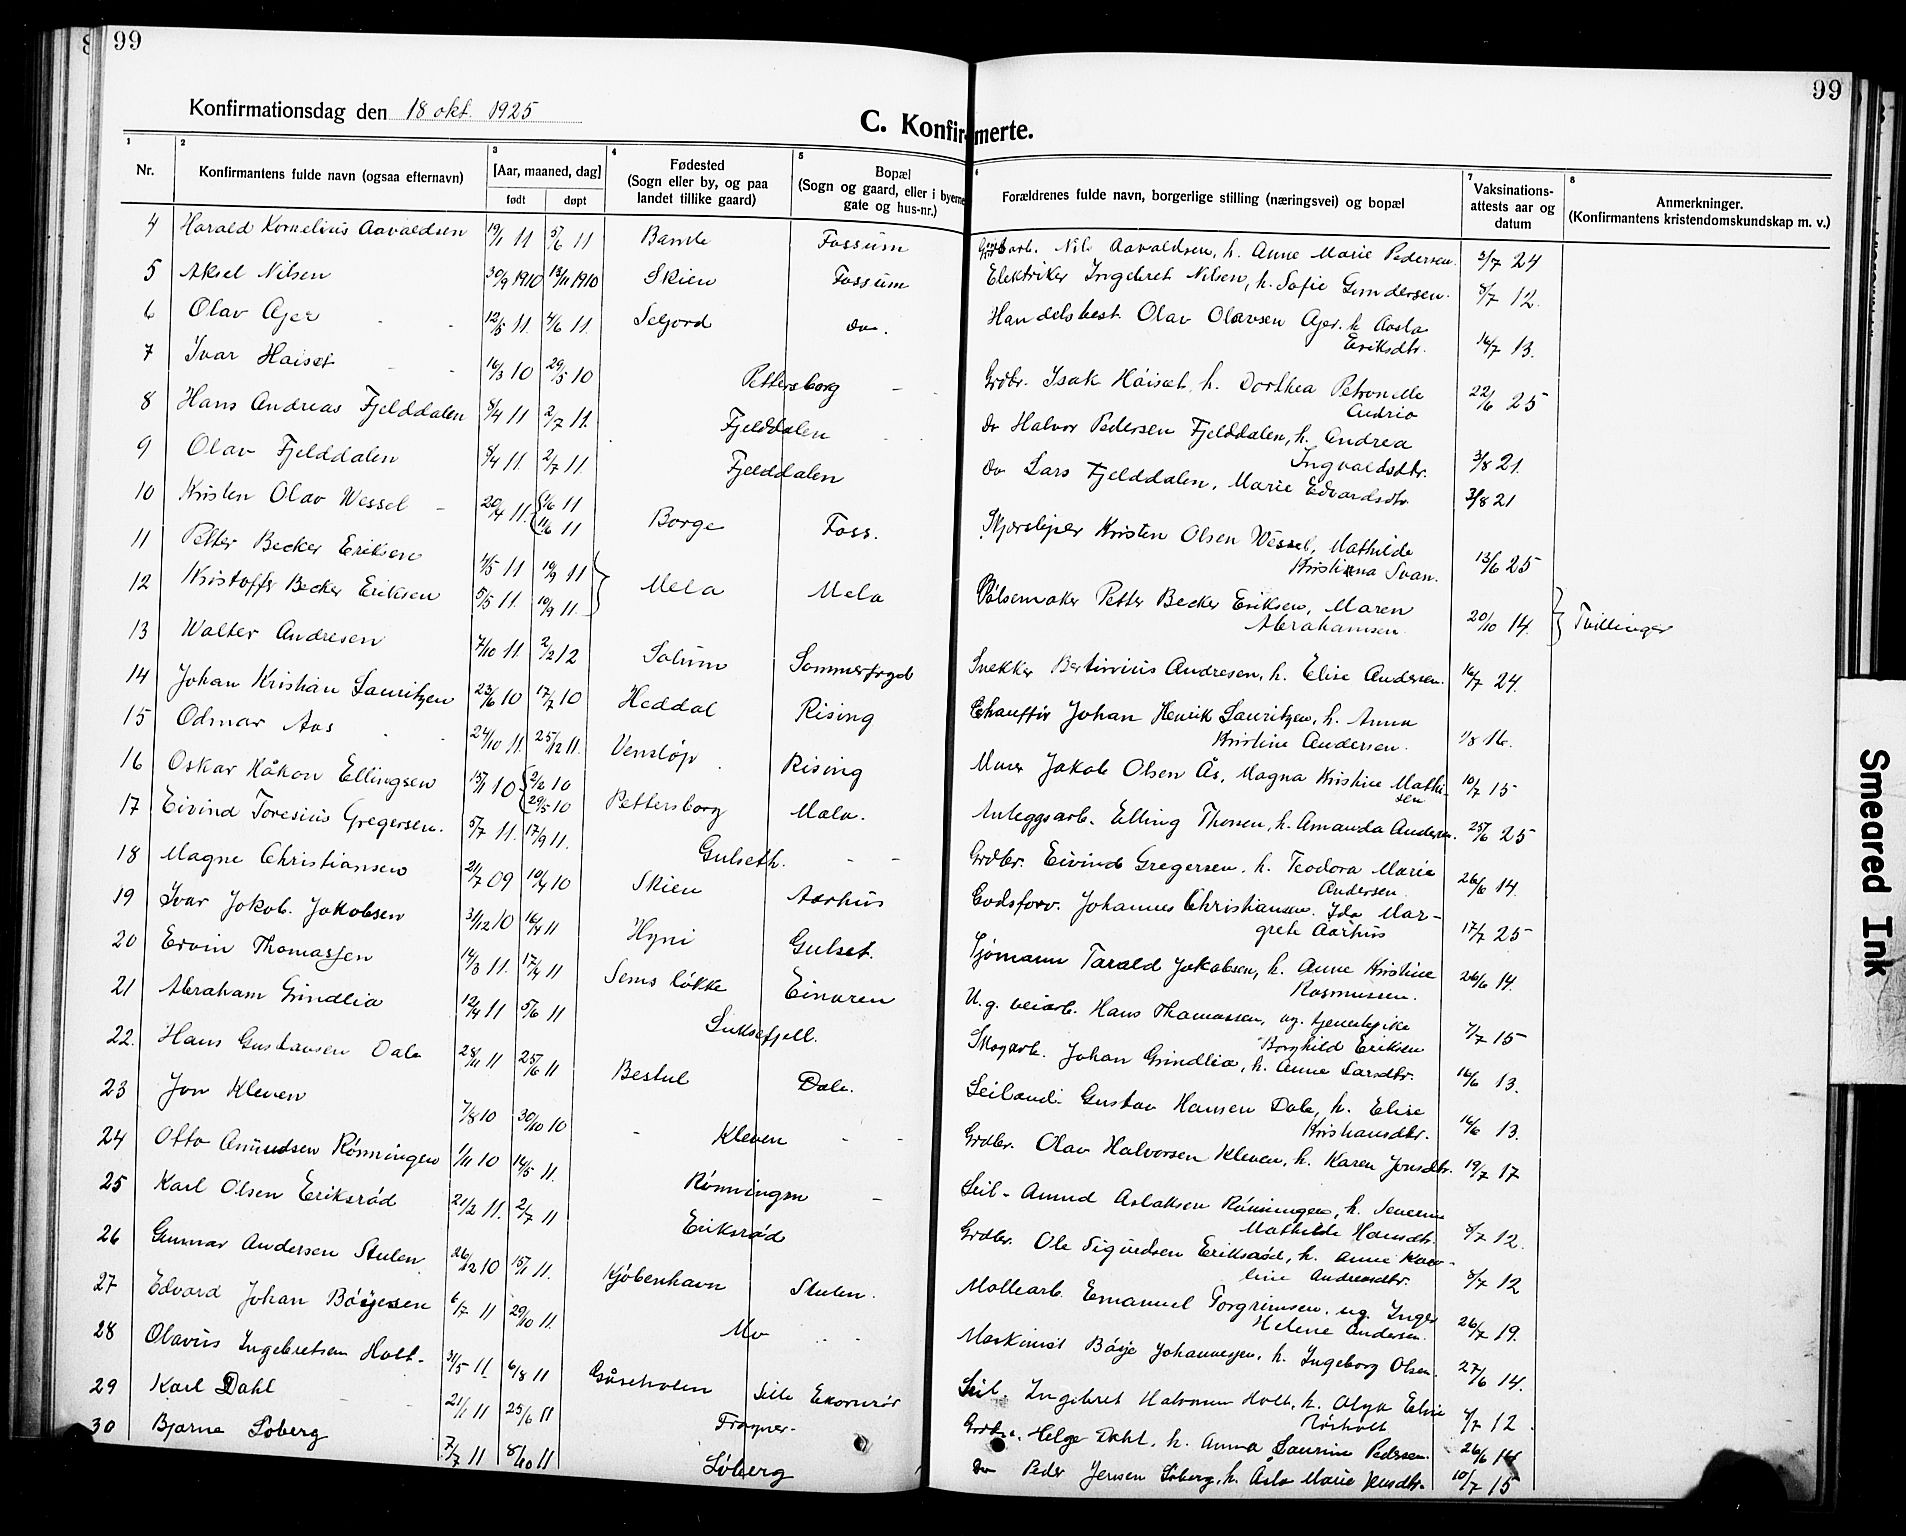 99
99
Konfirmationsdag den 18 okt. 1925
C. Konfirmerte.
1 2 3 4 5 6 7 8
Nr. Konfirmantens fulde navn (ogsaa efternavn) [Aar, maaned, dag] født døpt Fødested (Sogn eller by, og paa landet tillike gaard) Bopæl (Sogn og gaard, eller i byerne gate og hus-nr.) Forældrenes fulde navn, borgerlige stilling (næringsvei) og bopæl Vaksinations-attests aar og datum Anmerkninger. (Konfirmantens kristendomskundskap m. v.)
4 Harald Kornelius Aavaldsen 19/1 11 5/6 11 Bamle Fossum Nils Aavaldsen, h. Anne Marie Pedersen. 3/7 24
5 Aksel Nilsen 30/9 1910 13/11 1910 Skien Fossum Elektriker Ingebret Nilsen, h. Sofie Gundersen. 8/7 12.
6 Olav Ajer 12/5 11. 4/6 11. Seljord do. Handelsbest. Olav Olavsen Ajer. h. Aasla
Eriksdtr. 16/7 13.
7 Ivar Haiset 16/3 10 29/5 10 Pettersborg Grdbr. Isak Háiset, h. Dorthea Petronelle
Andria 22/6 25
8 Hans Andreas Fjelddalen 8/4 11 2/7 11. Fjelddalen Do Halvor Pedersen Fjelddalen, h. Andrea
Ingvaldsdtr. 3/8 21.
9 Olav Fjelddalen 5/4 11. 2/7 11 Fjelddalen do Lars Fjelddalen, Marie Edvardsdtr. 3/8 21
10 Kristen Olav Wessel 20/4 11. 1/6 11
11/6 11 Borge Foss. Kristen Olsen Wessel, Mathilde
Kristiana Svan. 13/6 25
11 Petter Becker Eriksen 4/5 11 10/9 11 Mela Mela Pølsemaker Petter Becker Eriksen, Maren
Abrahamsen. 20/10 14. Tvillinger
12 Kristoffr Becker Eriksen 5/5 11. 10/9 11.
13 Walter Andresen 7/10 11 2/2 12 Solum Sommerfryd Snekker Bertinius Andresen, h. Elise Andersen. 16/7 24.
14 Johan Kristian Lauritzen 23/6 10 17/7 10 Heddal Rising Chauffør Johan Henrik Lauritzen, h. Anna
Kristine Andersen. 1/8 16.
15 Odmar Aas 24/10 11. 25/12 11. Venstøp Rising Murer Jakob Olsen Ås, Magna Kristine Mathi-
sen 10/7 15
16 Oskar Håkon Ellingsen 15/1 10 2/2 10
29/5 10 Pettersborg Mela. Anleggsarb. Elling Thorsen, h. Amanda Andersen. 25/6 25
17 Eivind Toresius Gregersen. 5/7 11. 17/9 11. Gulseth. Grdbr. Eivind Gregersen, h. Teodora Marie
Andersen. 26/6 14.
18 Magne Christiansen 21/7 09 10/4 10 Skien Aarhus Godsforv. Johannes Christiansen. Ida Mar-
grete Aarhus 17/7 25
19 Ivar Jakob. Jakobsen 31/12 10 16/4 11 Hyni Gulset. Sjømann Tarald Jakobsen, h. Anne Kristine
Rasmussen. 26/6 14.
20 Ervin Thomassen 14/3 11. 17/4 11 Sems løkke Einaren U. g. veiarb. Hans Thomassen, ug. tjenestepike
Borghild Eriksen 7/7 15
21 Abraham Grindlia 12/4 11 5/6 11 Luksefjell. Skogarb. Johan Grindlia, h. Anne Larsdtr. 16/6 13.
22. Hans Gustavsen Dale 28/1 11 25/6 11 Bestul Dale. Leiland. Gustav Hansen Dale, h. Elise
Kristiansdtr. 16/6 13.
23 Jon Kleven 7/8 10 30/10 10 Kleven Grdbr. Olav Halvorsen Kleven, h. Karen Jonsdtr. 19/7 17
24 Otto Amundsen Rønningen 1/11 10 14/5 11. Rønningen Leil. Amund Aslaksen Rønningen, h. Severine
Mathilde Hansdtr. 8/7 12.
25 Karl Olsen Eriksrød 21/2 11. 2/7 11 Eriksrød Grdbr. Ole Sigurdsen Eriksrød, h. Anne Karo-
line Andreasdtr. 8/7 12
26 Gunnar Andersen Stulen. 26/12 10 15/1 11. Kjøbenhavn Stulen. Møllearb. Emanuel Torgrimsen, ug. Inger
Helene Andersen. 26/7 19.
27 Edvard Johan Bøyesen 6/7 11 29/10 11. Mo Maskinist Bøye Johannesen, h. Ingeborg Olsen. 27/6 14.
28 Olavus Ingebretsen Holt. 31/5 11. 6/8 11 Gåseholen Lille Ekornrør Leil. Ingebret Halvorsen Holt, h. Olga Elise
Rørholt 4/7 12
29 Karl Dahl 21/1 11 25/6 11 Frogner. Grdbr. Helge Dahl, h. Anna Laurine Pedersen. 26/6 14
30 Bjarne Løberg 7/7 11 8/10 11 Løberg Do Peder Jensen Løberg, h. Åsla Marie Jensdtr. 10/7 15
Smeared Ink